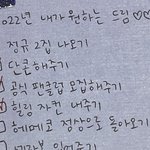 2022년 내가 원하는 드림♡♡
정규 2집 나오기
단콘해주기
공식 팬클럽 모집해주기
힐링 자컨 내주기
헤메코 정상으로 돌아오기